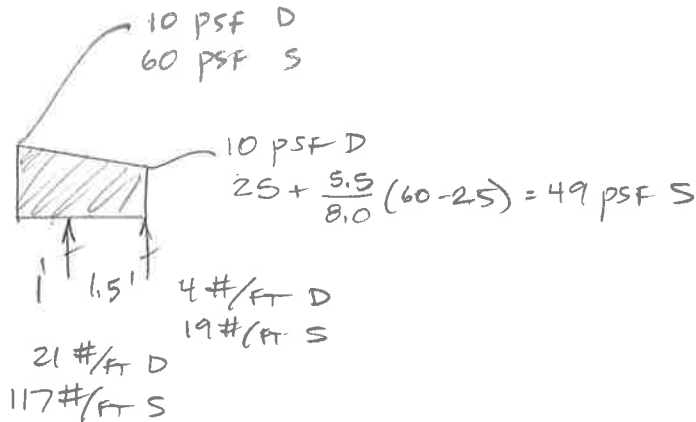 10 PSF D
60 PSF S
10 PSF D
25 + 5.5/8.0 (60-25) = 49 PSF S
1' 1.5'
4 #/FT D
19 #/FT S
21 #/FT D
117 #/FT S